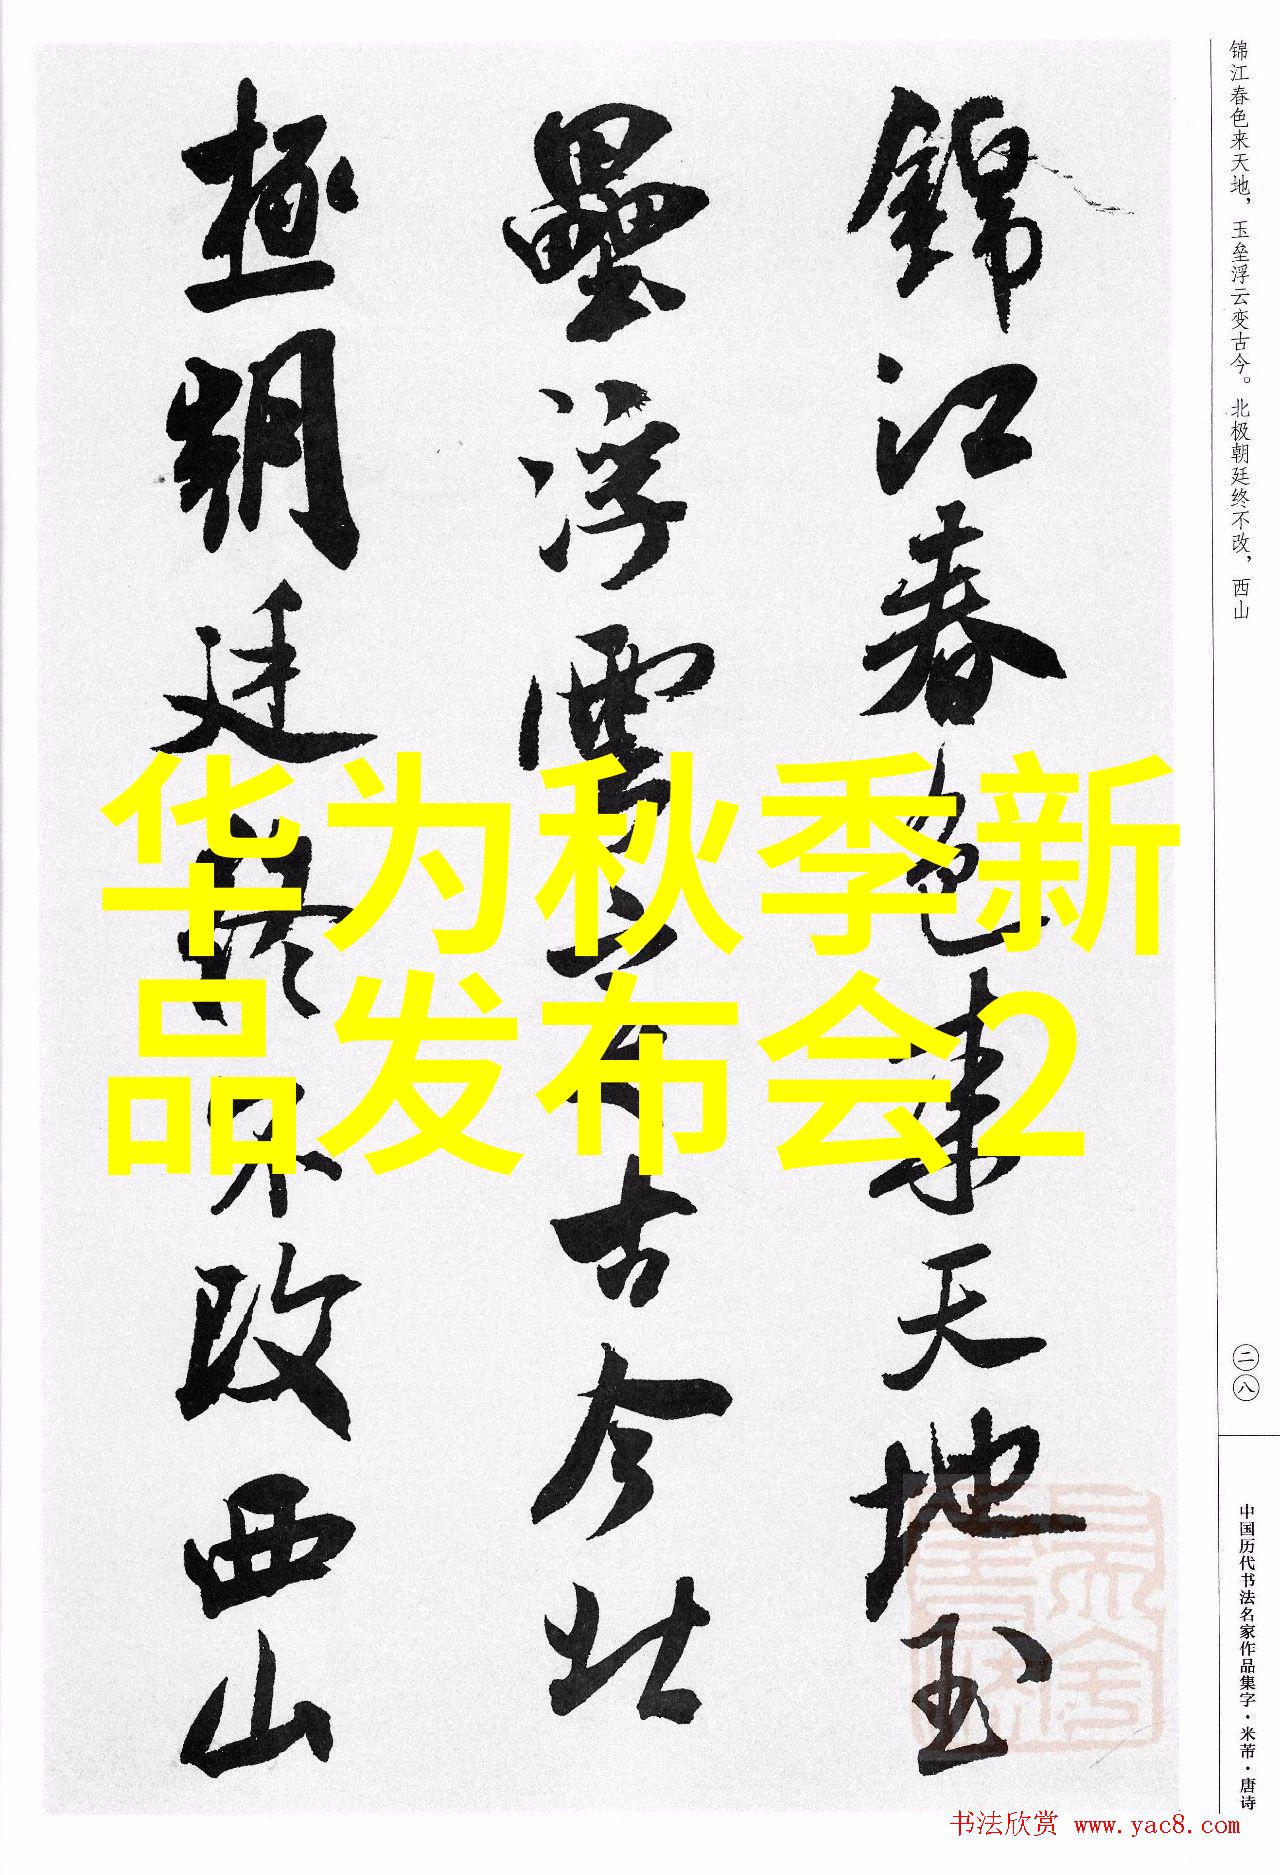 锦江春色来天地，玉垒浮云变古今。北极朝廷终不改，西山
錦江春色来天地玉
壘浮雲變古今北
極朝廷終不改西山
华为秋季新
品发布会2
二八
中国历代书法名家作品集字·米芾·唐诗
书法欣赏 www.yac8.com